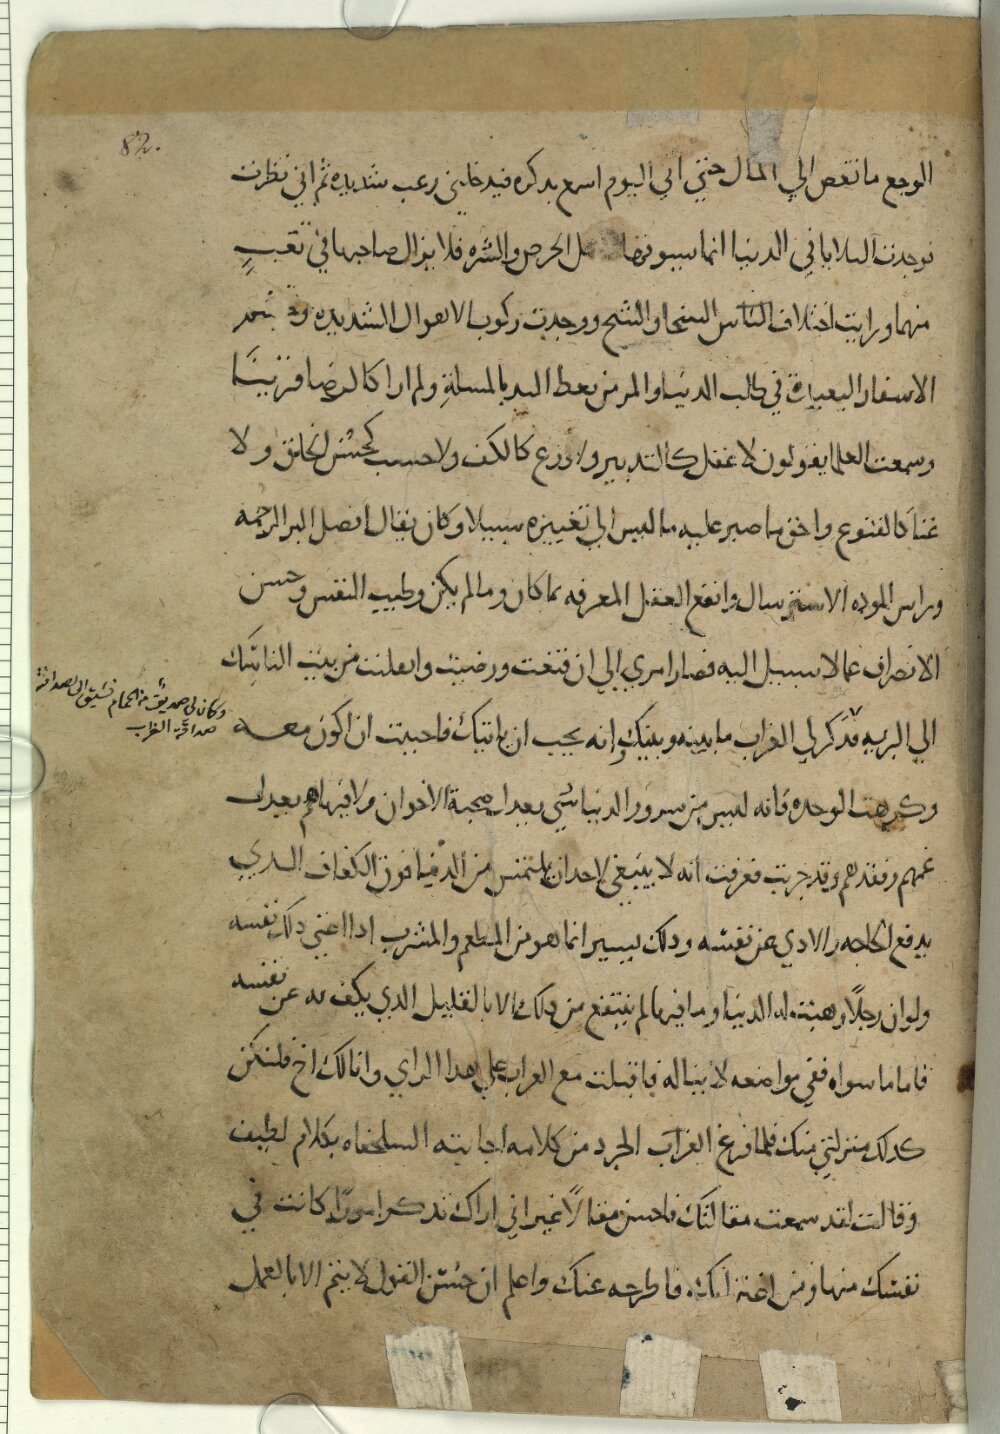 82.
الوجع ما نغص الي المال حتي اني اليوم اسمع بذكره فيدخلني رعب شديده ثم اني نظرت
فوجدت البلايا في الدنيا انما يسوقها اهل الحرص والشره فلا يزال صاحبها في تعب
منهما ورايت اختلاف الناس السخا والشح ووجدت ركوب الاهوال الشديده وتجشم
الاسفار البعيدة في طلب الدنيا والمر من بعط اليد بالمسلة ولم ارا كالرضا قربينا
وسمعت العلما يقولون لا عقل كالتدبير ولا ورع كالكف ولا حسب كحسن الخلق ولا
غنا كالقنوع واحق ما صبر عليه ما ليس الي تغييره سبيلا وكان يقال افضل البر الرحمه
وراس الموده الاسترسال وانفع العقل المعرفه بما كان وما لم يكن وطيب النفس وحسن
الانصراف عما لا سبيل اليه فصار امري الي ان قنعت ورضيت وانتقلت من بيت الناسك
وكان لي صديق من الحمام فسبق الي بصداقته
صداقة الغراب
الي البريه فذكر لي الغراب ما بينه وبينك وانه يحب ان ياتيك فاحببت ان اكون معه
وكرهت الوحده فانه ليس من سرور الدنيا شي يعدل صحبة الاخوان ولا فيها هم يعدل
غمهم وفقدهم وقد جربت فعرفت انه لا ينبغي لاحد ان يلتمس من الدنيا فوق الكفاف الدي
يدفع الحاجه والادي عن نفسه ودلك يسير انما هو من المطعم والمشرب ادا اعني دلك نفسه
ولو ان رجلا وهبت له الدنيا وما فيها لم ينتفع من دلك الا بالقليل الدي يكف به عن نفسه
فاما ما سواه ففي مواضعه لا يناله فاقبلت مع الغراب علي هدا الراي وانا لك اخ فلتكن
كدلك منزلتي منك فلما فرغ الغراب الجرد من كلامه اجابته السلحفاه بكلام لطيف
وقالت لقد سمعت مقالتك فاحسن مقالا غير اني اراك تدكر امورا كانت في
نفسك منها ومن اغترابك فاطرحه عنك واعلم ان حسن القول لا يتم الا بالعمل